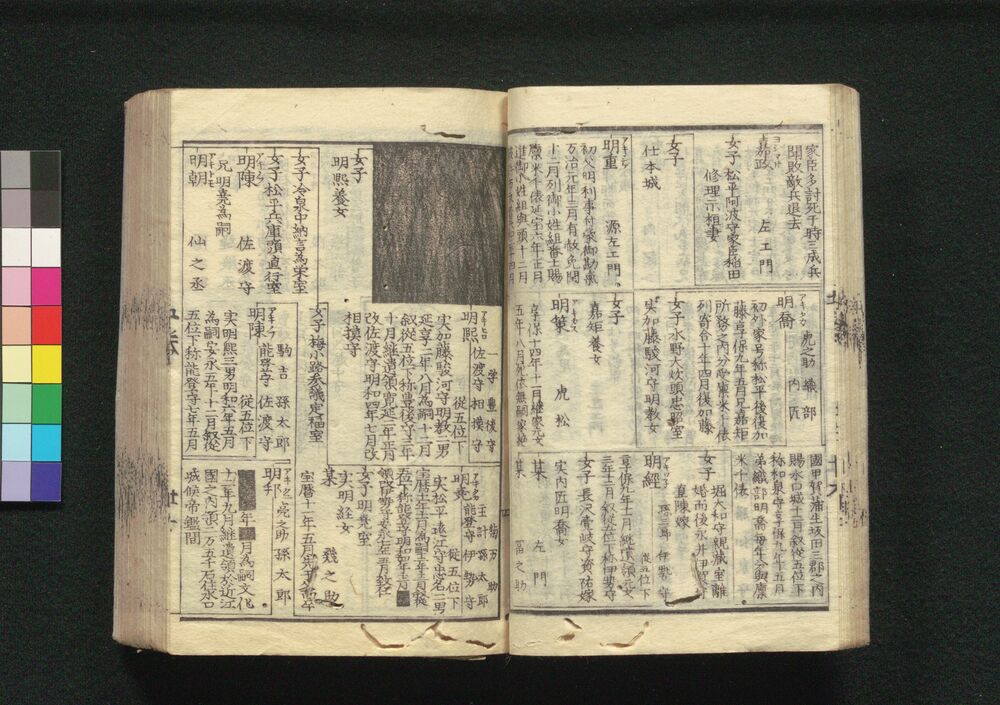 家臣多討死于時三成兵
聞敗敵兵退去
ヨシマサ
嘉政 左エ門
女子 松平阿波守家臣稲田
修理示植妻
女子
仕本城
アキシゲ
明重 源左エ門
初父明利事付蒙御勘氣
万治元年三月有赦免閏
十二月列御小姓組番士賜
廩米千俵延宝六年正月
進御小姓組與頭十二月
明喬 虎之助 織部 内匠
初外家号称松平後後加
藤享保九年五月兄嘉矩
所務之内分廩米千俵
列寄合十年四月復加藤
女子 水野大炊頭忠照室
実加藤駿河守明教女
女子
嘉矩養女
明葉 虎松
享保十四年十一月継家元文
五年八月死依無嗣家絶
國甲賀蒲生坂田三郡之内
賜水口城十二月叙從五位下
称和泉守享保九年五月
弟織部明喬毎年分與廩
米千俵
女子 堀大和守親蔵室離
婚而後永井伊賀守
直陳嫁
明經 孫三郎 伊勢守
從五位下
享保九年十一月継遺領元文
三年十二月叙從五位下称伊勢守
女子 長沢壹岐守資祐嫁
実内匠明喬女
某 左門
某 冨之助
女子
明煕養女
女子 冷泉中納言為栄室
女子 松平兵庫頭直行室
明陳 佐渡守
兄明尭為嗣
アキトモ
明朝 仙之丞
明煕 一学 豊後守
佐渡守 相摸守
從五位下
実加藤駿河守明教二男
延享二年八月為嗣十二月
叙從五位下称豊後守三年
十月継遺領寛延二年正月
改佐渡守明和四年七月改
相摸守
女子 梅小路参議定福室
駒吉 孫太郎
明陳 能登守 佐渡守
從五位下
実明煕三男明和六年五月
為嗣安永五年十二月叙從
五位下称能登守七年五月
明尭 主計 孫太郎
能登守 伊勢守
從五位下
実松平遠江守忠名二男
女子 明尭室
実明経女
某 幾之助
宝暦十一年五月
明邦 亮之助 孫太郎
年 月為嗣文化
十二年九月継遺領於近江
國之内二万五千石住水口
城候帝鑑間